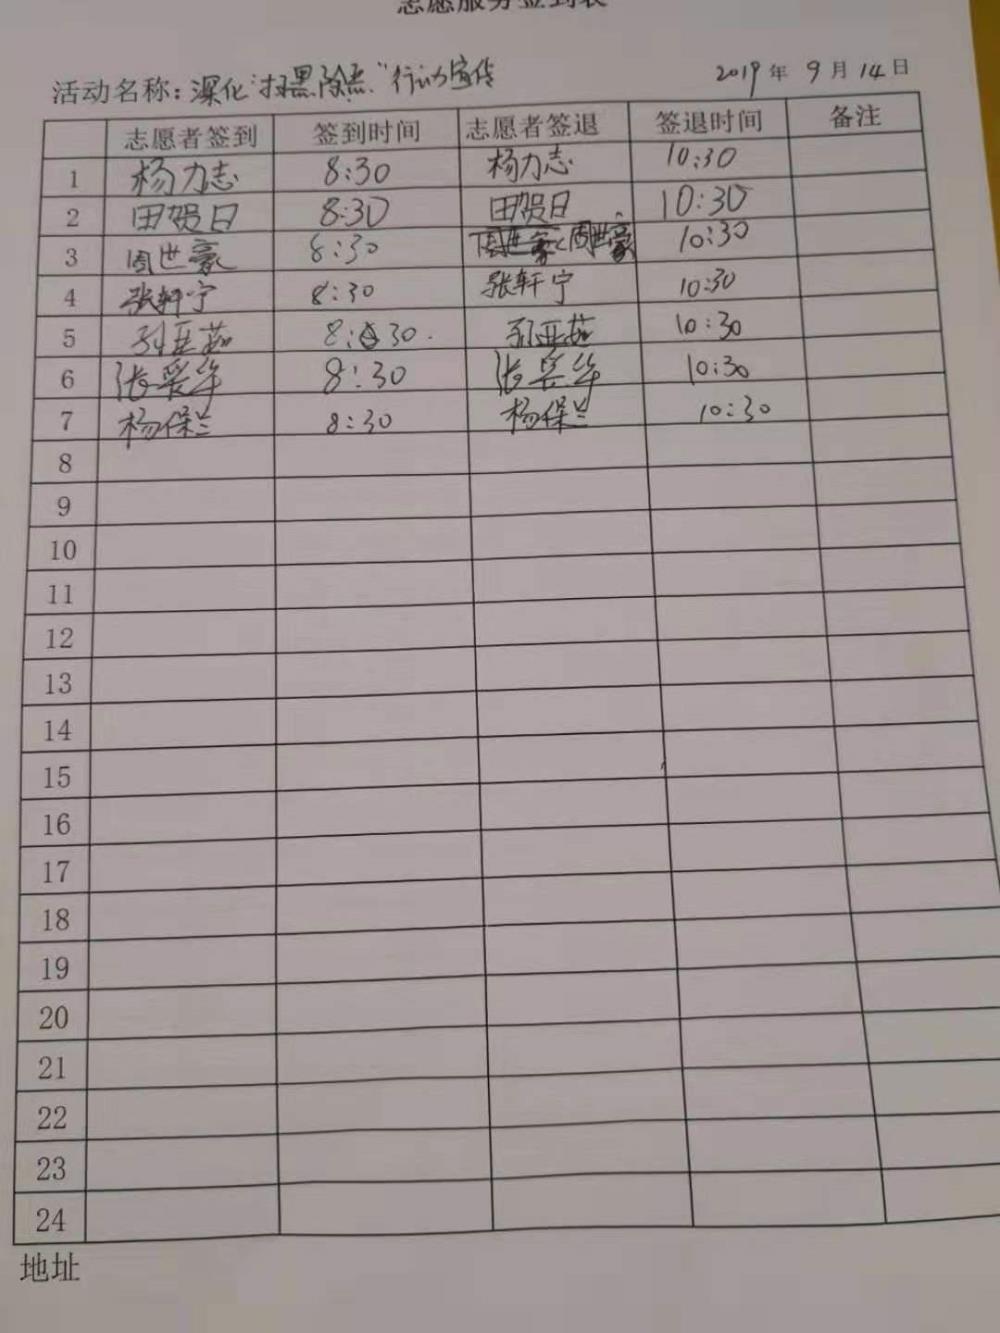 志愿服务签到表
活动名称：深化"扫黑除恶"行动宣传 2019年9月14日
志愿者签到 签到时间 志愿者签退 签退时间 备注
1 杨力志 8:30 杨力志 10:30
2 田贺日 8:30 田贺日 10:30
3 周世豪 8:30 周世豪 10:30
4 张轩宁 8:30 张轩宁 10:30
5 孙亚茹 8:30. 孙亚茹 10:30
6 8:30 10:30
7 杨保兰 8:30 杨保兰 10:30
8
9
10
11
12
13
14
15
16
17
18
19
20
21
22
23
24
地址